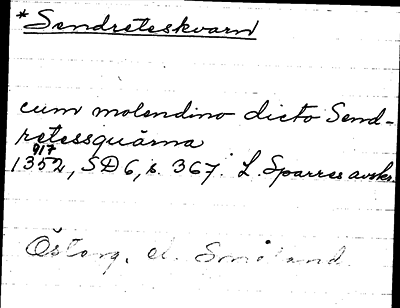 *Sendreteskvarn
cum molendino dicto Send-
retessquärna
9/7
1352, SD6, s. 367. L. Sparres avskr.
Östg. el. Småland